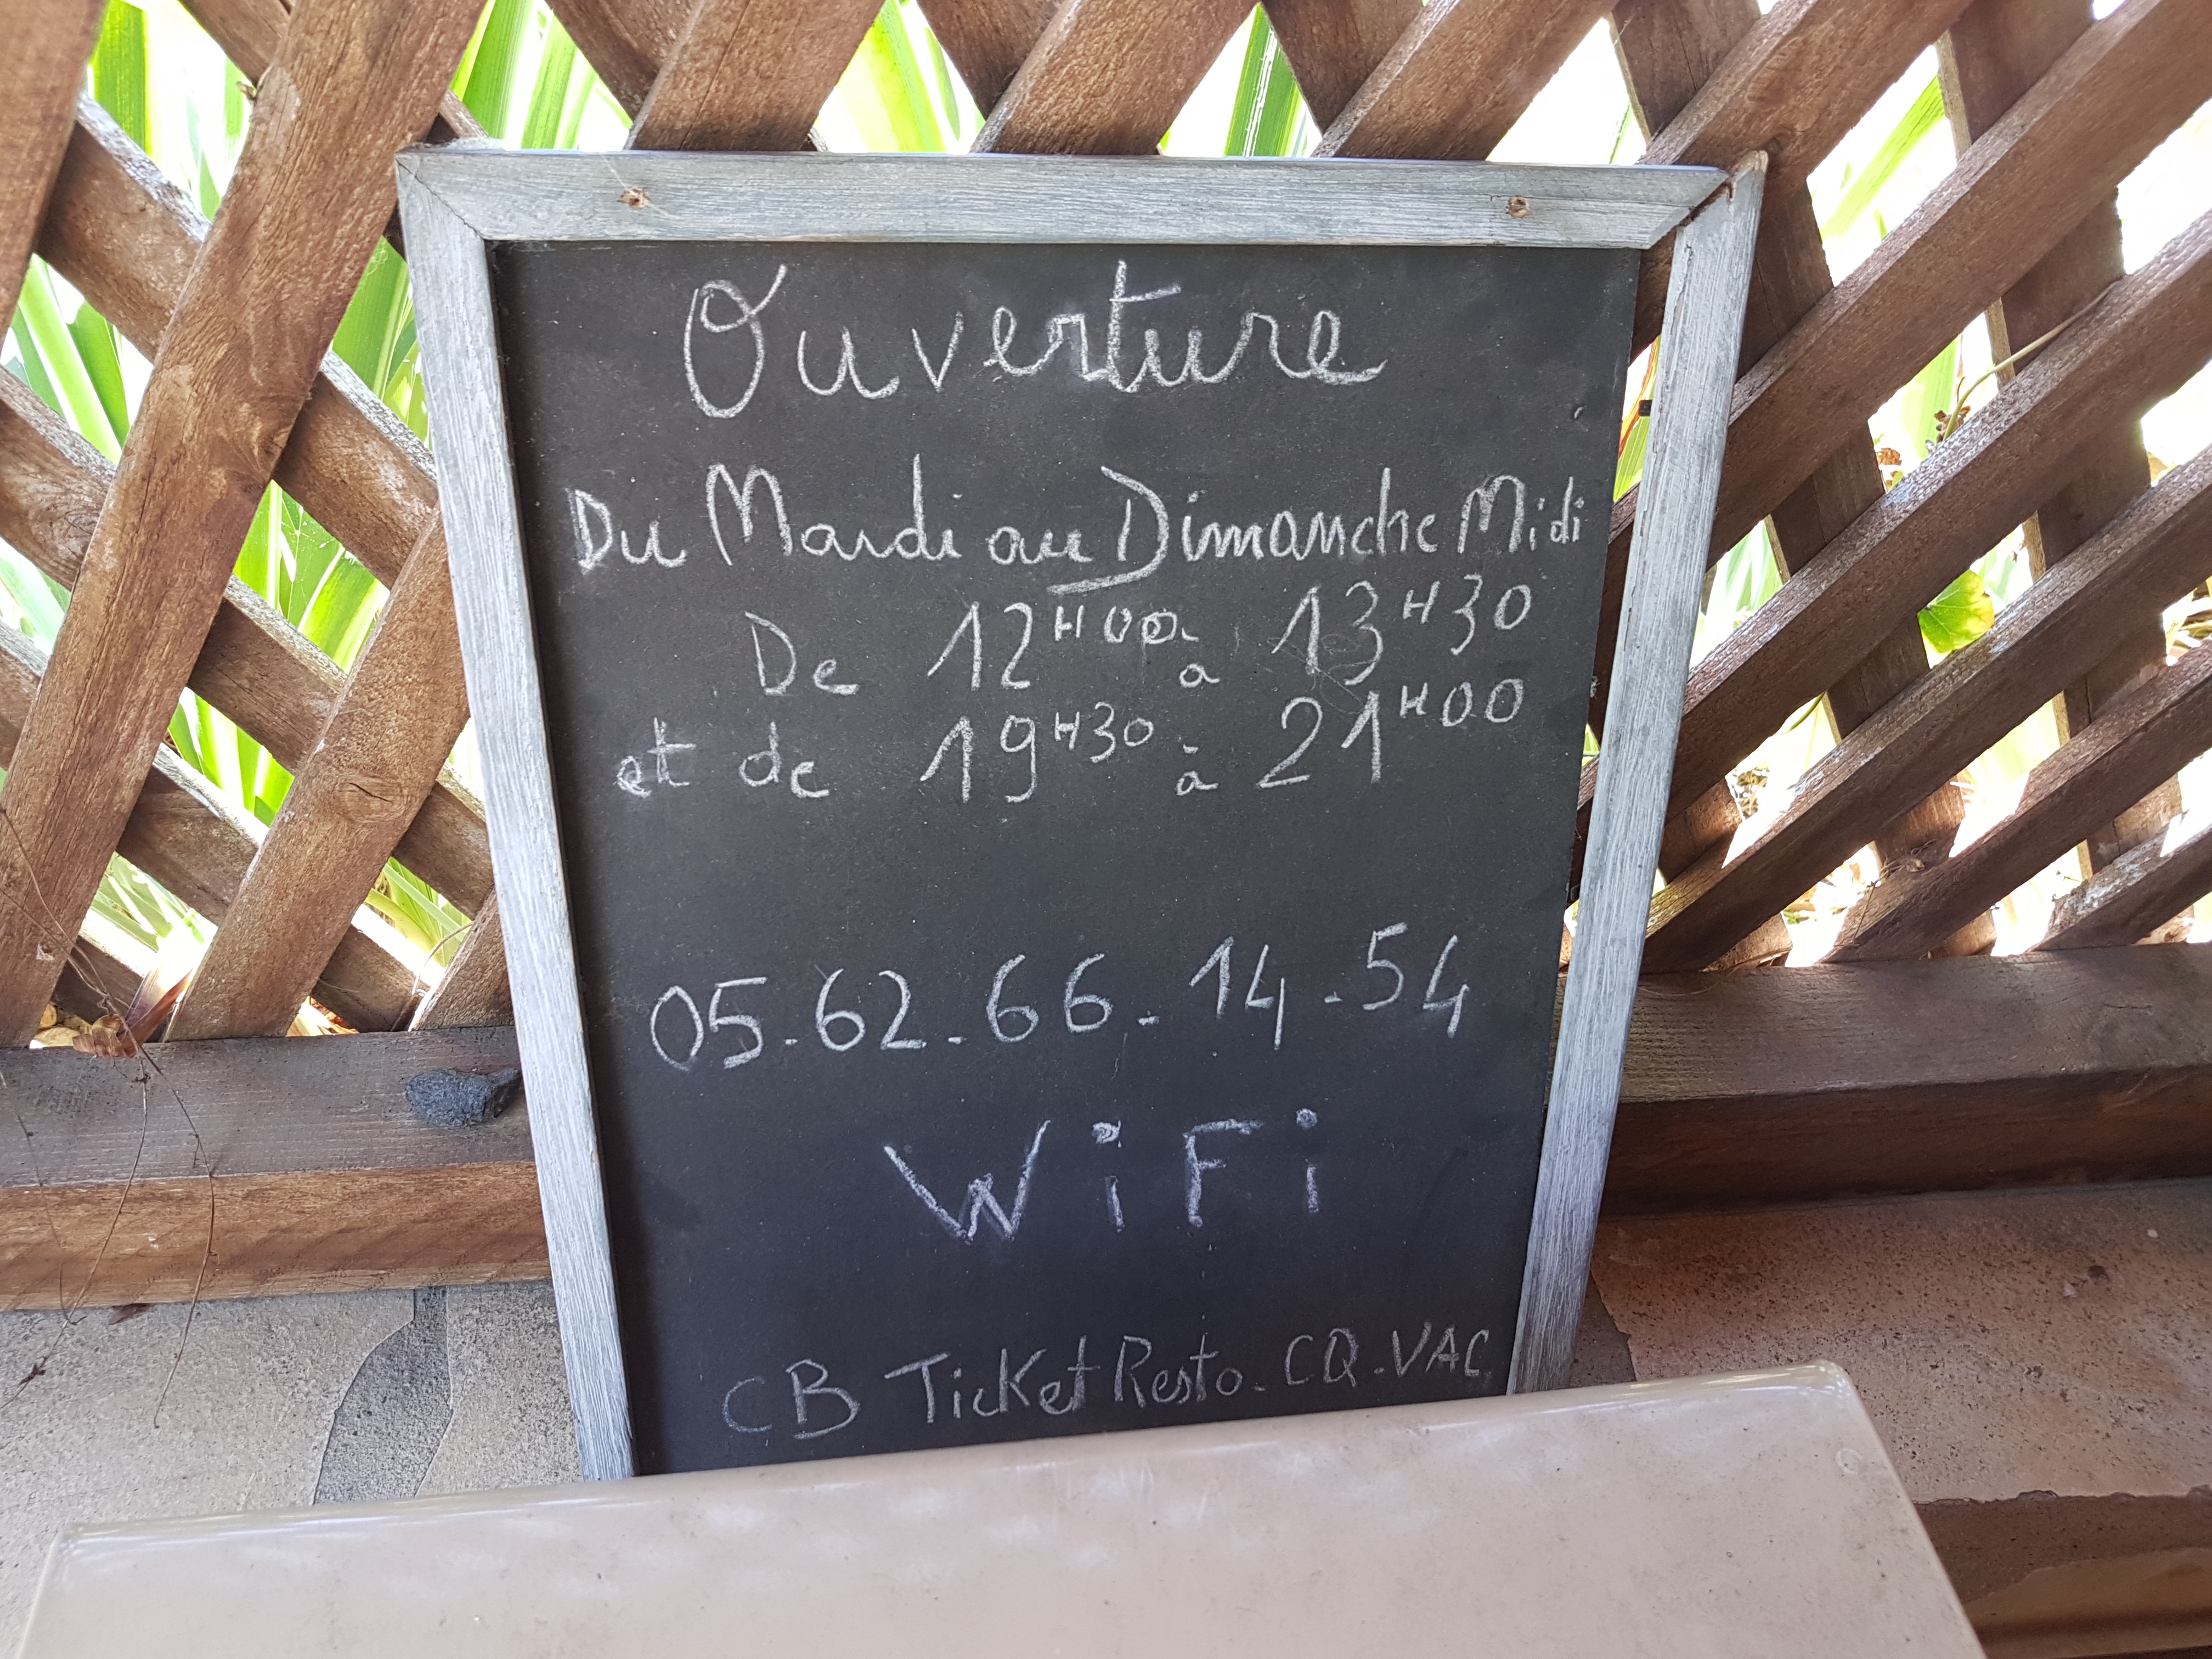 Ouverture
Du Mardi au Dimanche Midi
De 12H00 à 13H30
et de 19H30 à 21H00
05.62.66.14.54
WiFi
CB Ticket Resto. CQ.VAC